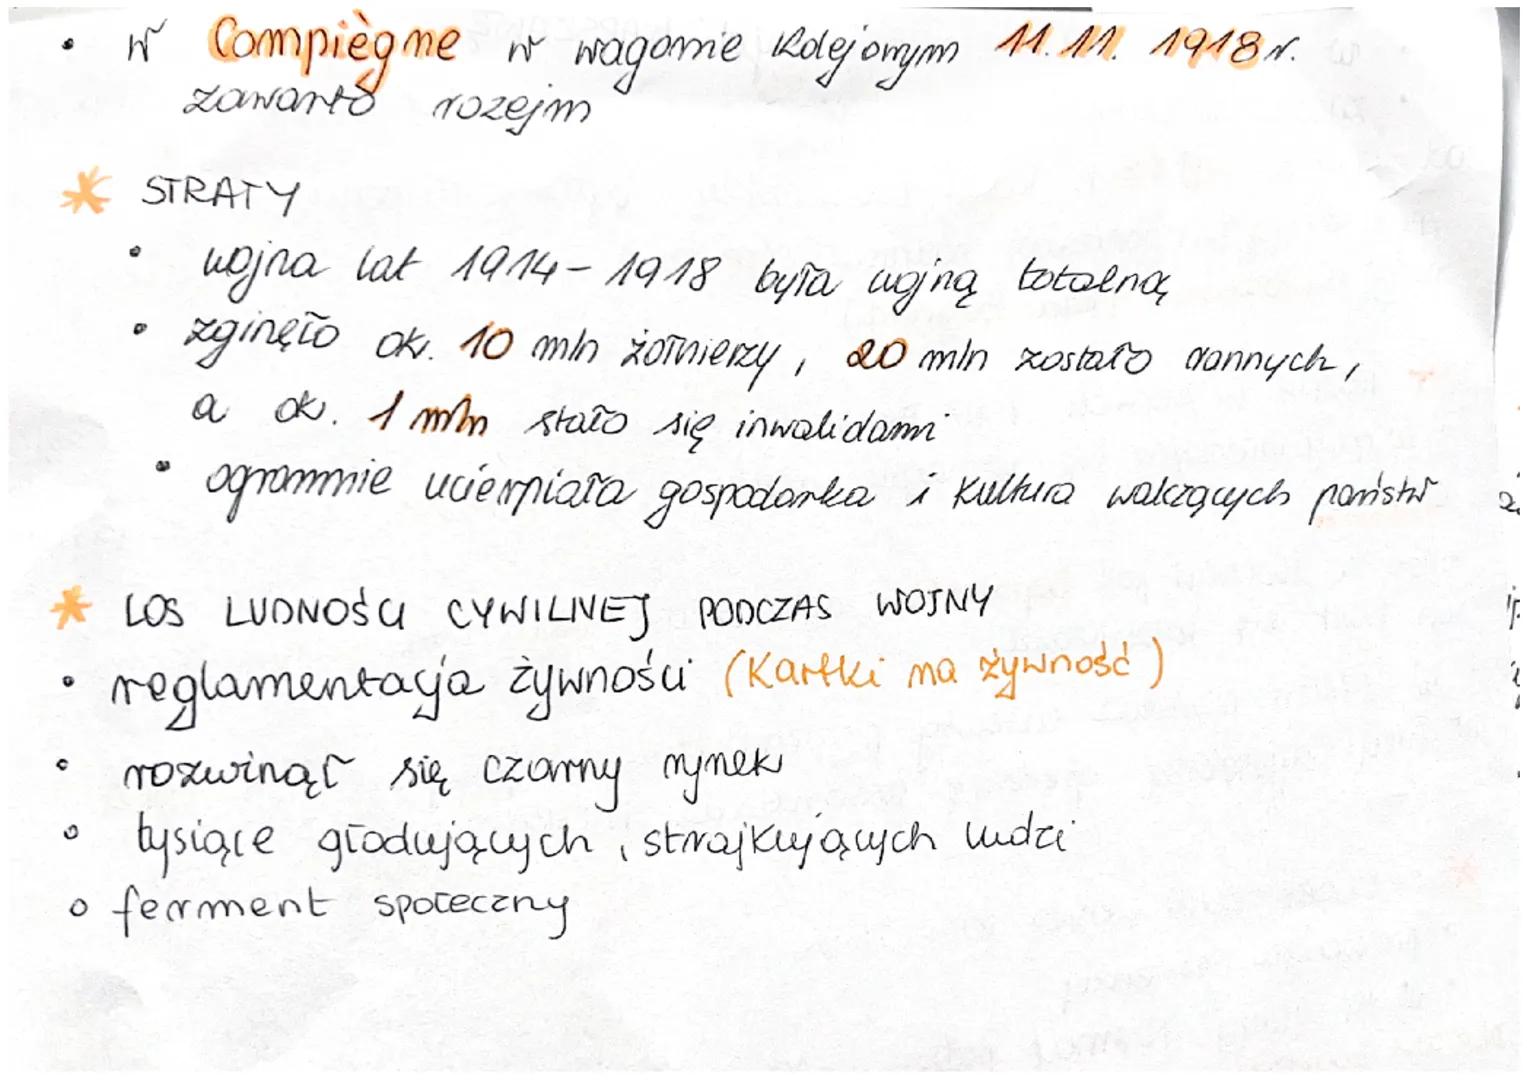 • w Compiègne w wagonie kolejowym 11.11.1918 r.
zawarto rozejm
* STRATY
• wojna lat 1914-1918 była wojną totalną
• zginęło ok. 10 mln żołnierzy, 20 mln zostało rannych,
a ok. 1 mln stało się inwalidami
• ogromnie ucierpiała gospodarka i kultura walczących państw
* LOS LUDNOŚCI CYWILNEJ PODCZAS WOJNY
• reglamentacja żywności (kartki na żywność)
• rozwinął się czarny rynek
• tysiące głodujących, strajkujących ludzi
• ferment społeczny